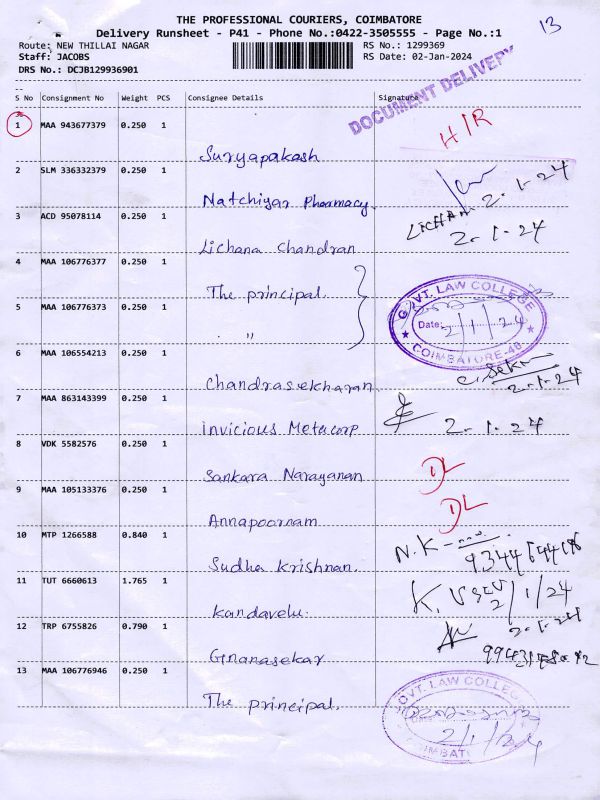 THE PROFESSIONAL COURIERS, COIMBATORE
13
Delivery Runsheet - P41 - Phone No.:0422-3505555 - Page No.:1
Route: NEW THILLAI NAGAR
RS No.: 1299369
Staff: JACOBS
RS Date: 02-Jan-2024
DRS No.: DCJB129936901
DOCUMENT DELIVERY
S No Consignment No Weight PCS Consignee Details Signature
1 MAA 943677379 0.250 1
H/R
Suryapakash
2 SLM 336332379 0.250 1
2-1-24
Natchiyar Pharmacy.
3 ACD 95078114 0.250 1
LICHAN
2-1-24
Lichana Chandran
4 MAA 106776377 0.250 1
The principal.
GOVT. LAW COLLEGE
Date: 2/1/24
COIMBATORE-46
5 MAA 106776373 0.250 1
"
6 MAA 106554213 0.250 1
Chandrasekharan
2-1-24
7 MAA 863143399 0.250 1
Invicious Metacorp
2-1-24
8 VDK 5582576 0.250 1
Sankara Narayanan
DL
9 MAA 105133376 0.250 1
Annapoornam
DL
10 MTP 1266588 0.840 1
N.K
Sudha Krishnan.
11 TUT 6660613 1.765 1
2/1/24
Kandavelu.
12 TRP 6755826 0.790 1
2-1-24
Gnanasekar
13 MAA 106776946 0.250 1
The principal.
GOVT. LAW COLLEGE
2/1/24
COIMBAT